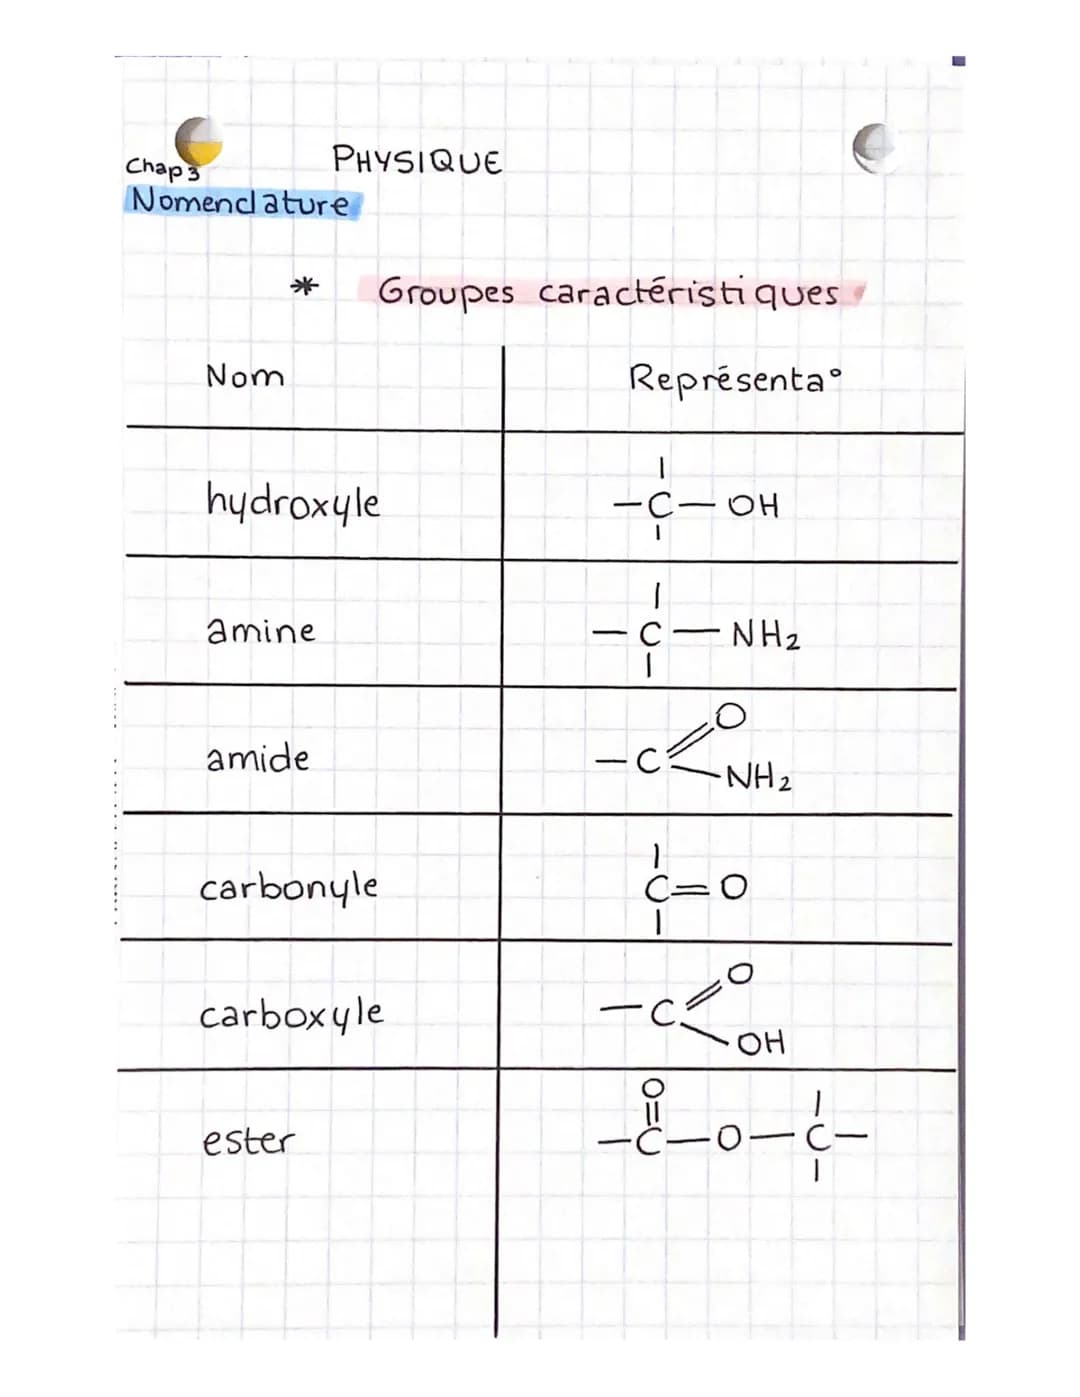 PHYSIQUE
Chap 3
Nomenclature
* Groupes caractéristiques
Nom Représenta°
hydroxyle -C-OH
amine -C-NH2
amide -C=O -NH2
carbonyle C=O
carboxyle -C=O -OH
ester -C(=O)-O-C-